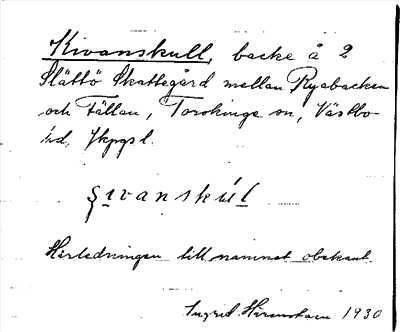 Kivanskull, backe å 2
Slättö Skattegård mellan Ryabacken
och Fällan, Torskinge sn, Västbo
hd, Jkpgs l.
ṣıvanskúl
Härledningen till namnet obekant.
Ingrid 1930